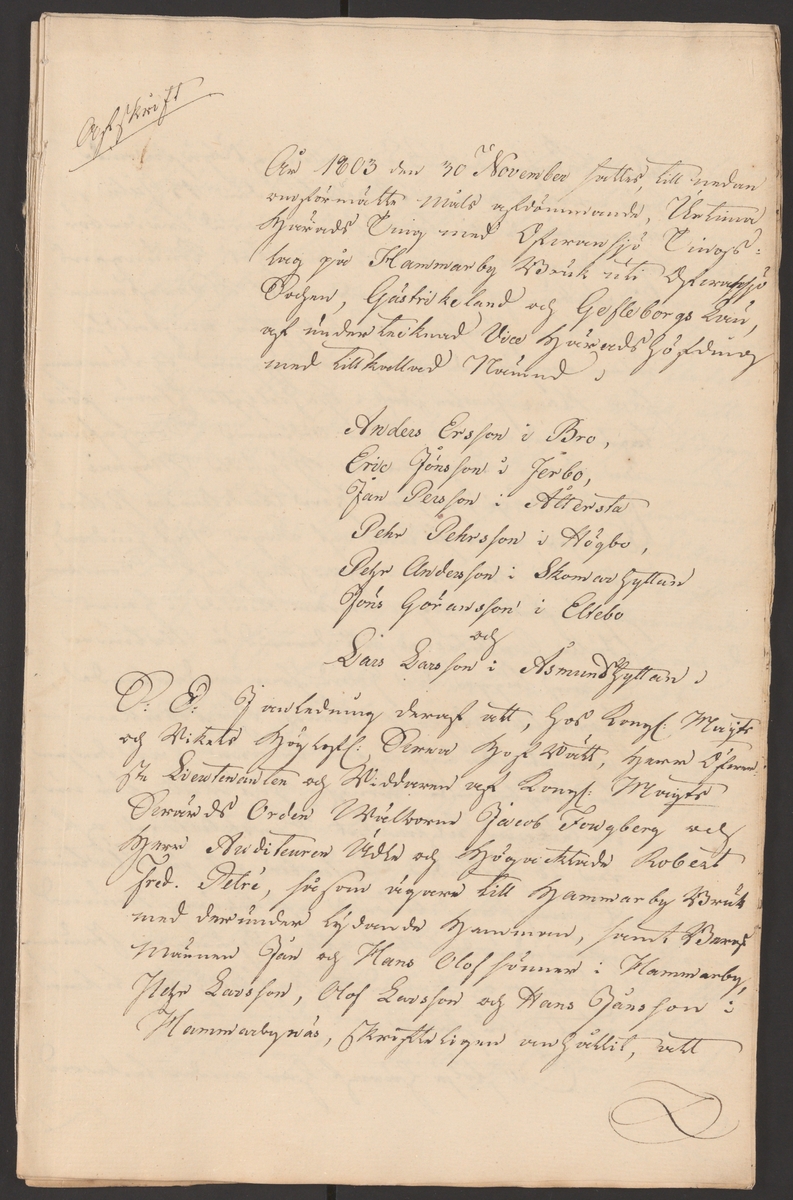 Afskrift
År 1803 den 30 November hölls, till nedan
omförmälte Måls afdömmande, Urtima
Härads Ting med Ofvansjö Tings-
lag på Hammarby Bruk uti Ofvansjö
Sochen, Gästrikeland och Gefleborgs Län,
af undertecknad Vice Häradshöfding
med tillkallad Nämnd,
Anders Ersson i Bro,
Eric Jönsson i Jerbo,
Jan Persson i Åttersta
Pehr Pehrsson i Högbo,
Pehr Andersson i Skomarhyttan
Jöns Göransson i Eltebo
och
Lars Larsson i Åsmundshyttan,
S: D: I anledning deraf att, hos Kongl: Majts
och Rikets Höglofl: Svea Hof Rätt, Herr Öfver-
ste Lieutenanten och Riddaren af Kongl: Majts
Svärds Orden Wälborne Jacob Fougberg och
Herr Auditeuren Ädle och Högacktade Robert
Fred. Petré, såsom ägare till Hammarby Bruk
med derunder lydande Hemman, samt Bergs
männen Jan och Hans Olofssönner i Hammarby,
Pehr Larsson, Olof Larsson och Hans Jansson i
Hammarbynäs, skrifteligen anhållit, att